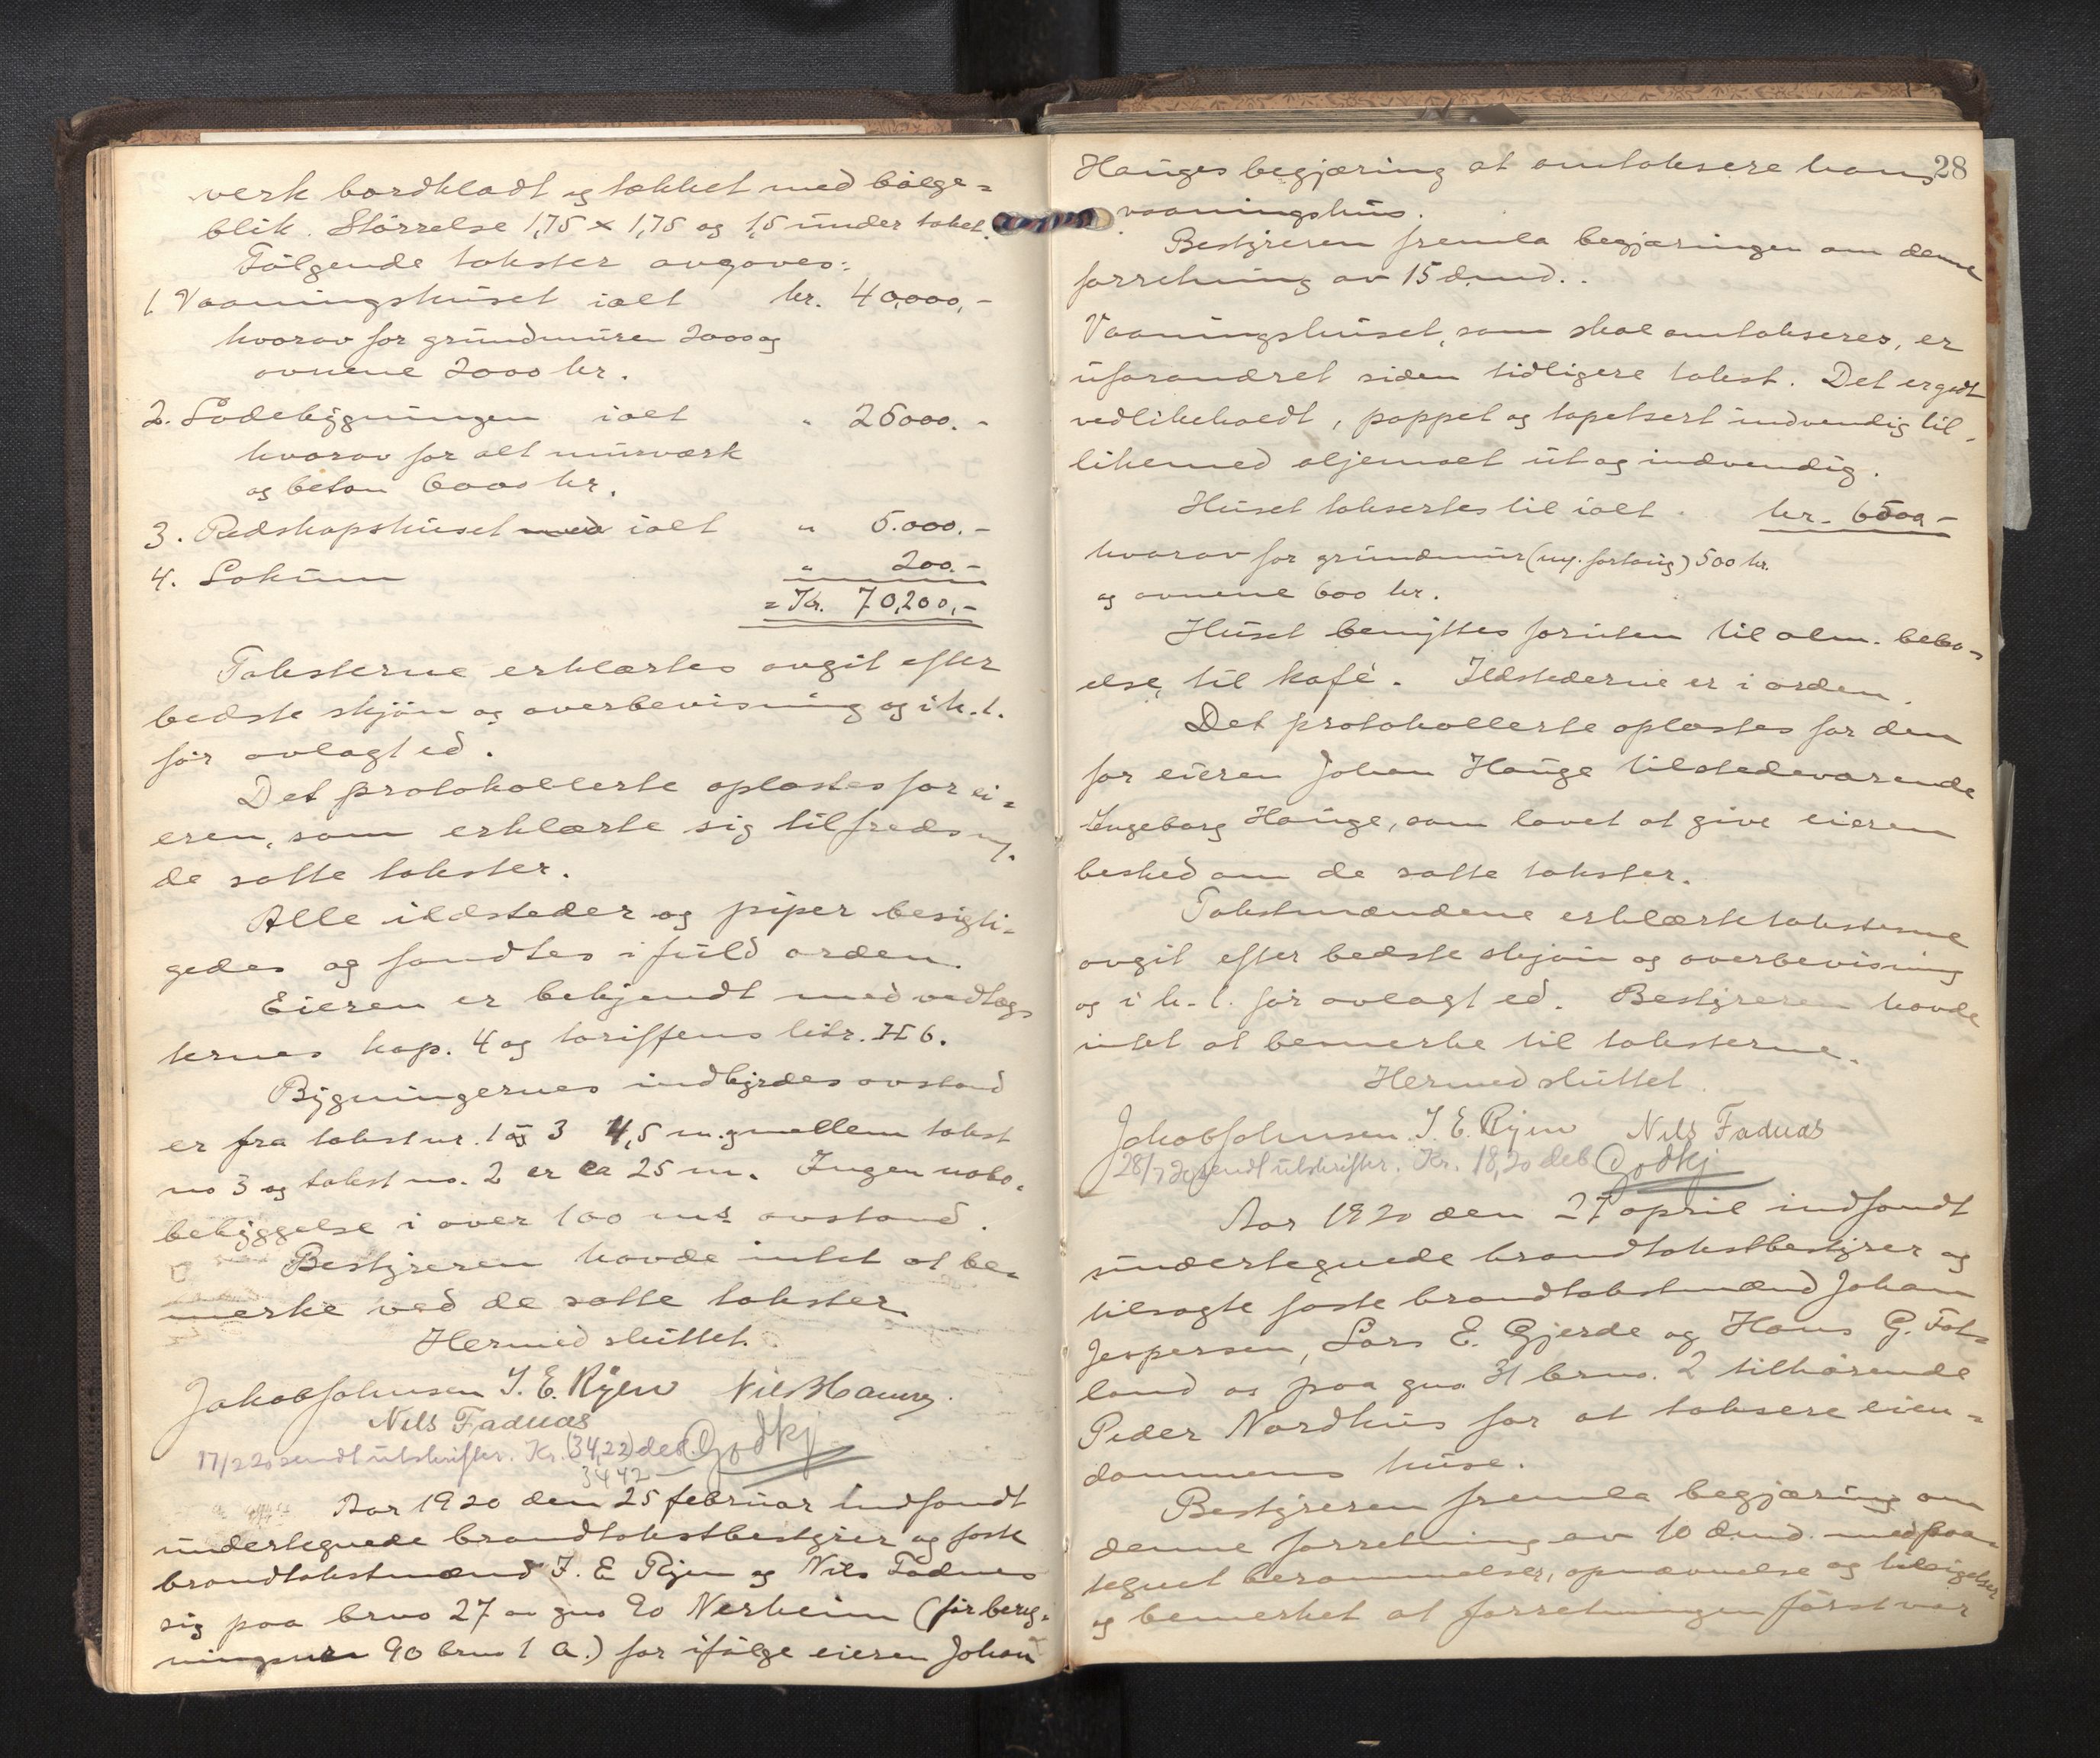 verk bordkladt og tækket med bølge=
blik. Størrelse 1,75 x 1,75 og 1,5 under taket.
Følgende takster avgaves:
1. Vaaningshuset ialt kr. 40,000,-
hvorav for grundmuren 2000 og
ovnene 2000 kr.
2. Ladebygningen ialt " 25000.-
hvorav for alt murværk
og beton 6000 kr.
3. Redskapshuset med ialt " 5.000.-
4. Lokum " 200.-
= Kr. 70,200,-
Taksterne erklærtes avgit efter
bedste skjøn og overbevisning og i h.t.
før avlagt ed.
Det protokollerte oplæstes for ei=
eren, som erklærte sig tilfreds m.
de satte takster.
Alle ildsteder og piper besigti-
gedes og fandtes i fuld orden.
Eieren er bekjendt med vedtæg-
ternes kap. 4 og tariffens litr. H 6.
Bygningernes indbyrdes avstand
er fra takst nr. 1 og 3 4,5 m. og mellem takst
no 3 og takst no. 2 er ca 25 m. Ingen nabo-
bebyggelse i over 100 ms avstand.
Bestyreren havde intet at be-
merke ved de satte takster.
Hermed sluttet.
Jakob Johnsen I. E. Ryen Nils Haaug.
Nils Fadnæs
17/2 20 sendt utskrifter. Kr. (34,22) deb. Godkj
34 42
Aar 1920 den 25 februar indfandt
undertegnede brandtakstbestyrer og faste
brandtakstmænd I. E. Ryen og Nils Fadnes
sig paa brno 27 av gno 90 Nerheim (før
90 brno 1 a.) for ifølge eieren Johan
28
Hauges begjæring at omtaksere hans
vaaningshus.
Bestyreren fremla begjæringen om denne
forretning av 15 d.md..
Vaaningshuset, som skal omtakseres, er
uforandret siden tidligere takst. Det er godt
vedlikeholdt, pappet og tapetsert indvendig til-
likemed oljemalt ut og indvendig.
Huset taksertes til ialt. kr. 6500,-
hvorav for grundmur (ny. forhøig) 500 kr.
og ovnene 600 kr.
Huset benyttes foruten til alm. bebo-
else, til kafé. Ildstederne er i orden.
Det protokollerte oplæstes for den
for eieren Johan Hauge tilstedeværende
Ingeborg Hauge, som lovet at give eieren
besked om de satte takster.
Takstmændene erklærte taksterne
avgit efter bedste skjøn og overbevisning
og i h.t. før avlagt ed. Bestyreren havde
intet at bemerke til taksterne.
Hermed sluttet.
Jakob Johnsen. I. E. Ryen Nils Fadnæs
28/2 20 sendt utskrifter. Kr. 18,20 deb Godkj
Aar 1920 den 27 april indfandt
undertegnede brandtakstbestyrer og
tilsagte faste brandtakstmænd Johan
Jespersen, Lars E. Gjerde og Hans G. Fats-
land os paa gno 31 brno. 2 tilhørende
Peder Nordhus for at taksere eien=
dommens huse.
Bestyreren fremla begjæring om
denne forretning av 10 d.md. med paa-
tegnet berammelse, opnævnelse og tilsigelse
og bemerket at forretningen først var